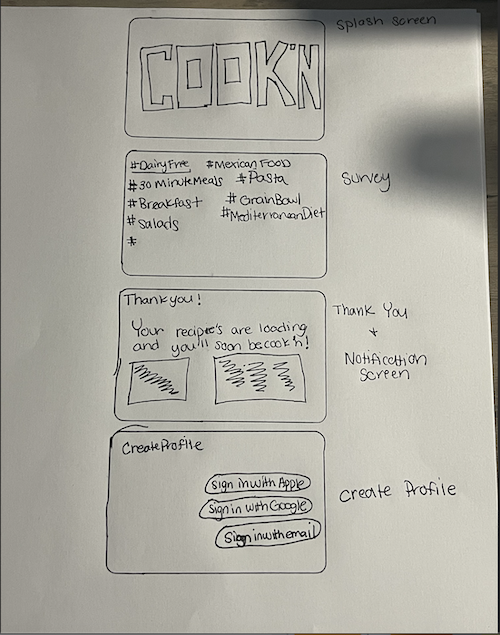 Splash Screen
COOK'N
#DairyFree #Mexican FOOD
#30 MinuteMeals #Pasta
#Breakfast #GrainBowl
#Salads #MediterraneanDiet
#
Survey
Thankyou!
Your recipe's are loading
and you'll soon be cook'n!
Thank You
+
Notification
Screen
CreateProfile
Sign in with Apple
Sign in with Google
Sign in with email
Create Profile